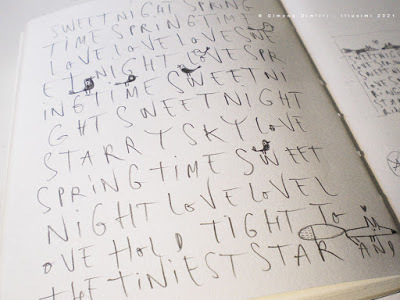 © Simone Dimitri . illusimi 2021
SWEET NIGHT SPRING
TIME SPRING TIME
LOVE LOVE LOVE SWE
ET NIGHT LOVE SPR
ING TIME SWEET NI
GHT SWEET NIGHT
STARRY SKY LOVE
SPRING TIME SWEET
NIGHT LOVE LOVE L
OVE HOLD TIGHT TO
THE TINIEST STAR AND